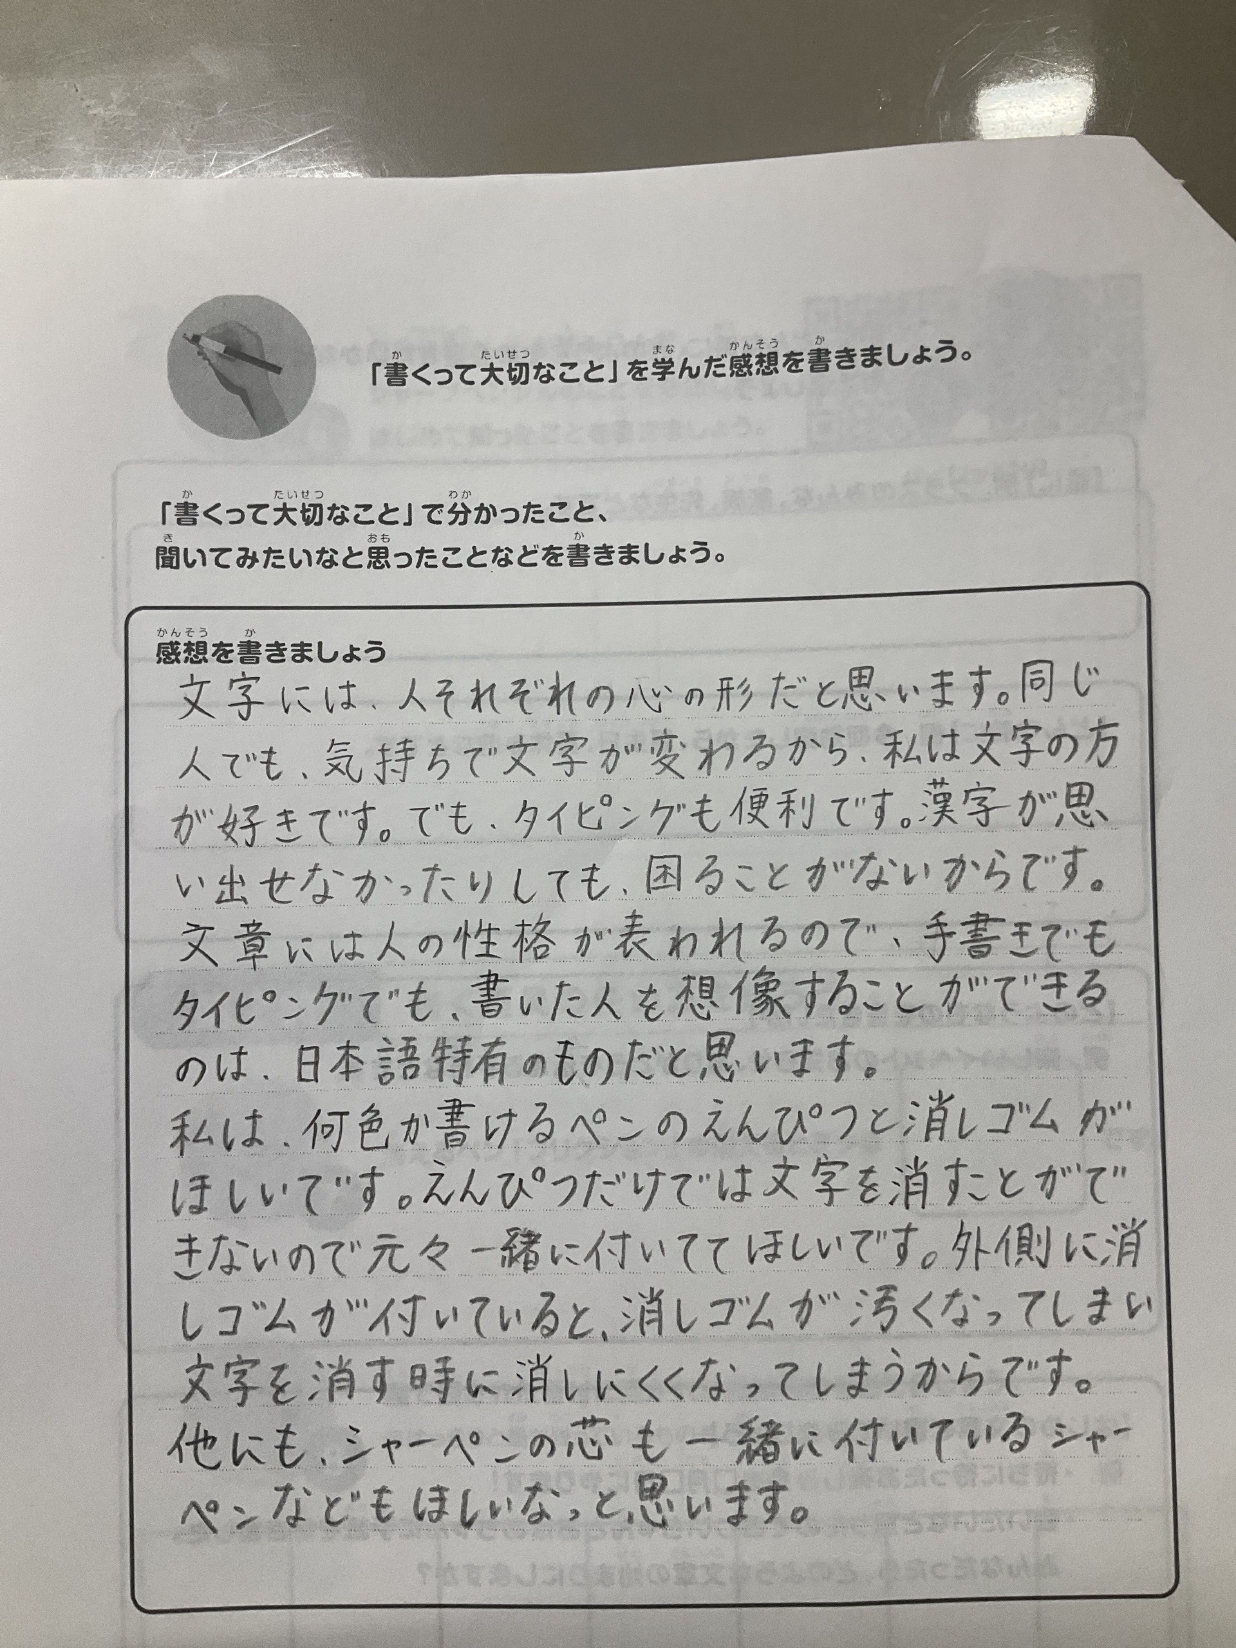 「書くって大切なこと」を学んだ感想を書きましょう。
「書くって大切なこと」で分かったこと、
聞いてみたいなと思ったことなどを書きましょう。
感想を書きましょう
文字には、人それぞれの心の形だと思います。同じ
人でも、気持ちで文字が変わるから、私は文字の方
が好きです。でも、タイピングも便利です。漢字が思
い出せなかったりしても、困ることがないからです。
文章には人の性格が表われるので、手書きでも
タイピングでも、書いた人を想像することができる
のは、日本語特有のものだと思います。
私は、何色か書けるペンのえんぴつと消しゴムが
ほしいです。えんぴつだけでは文字を消すことがで
きないので元々一緒に付いててほしいです。外側に消
しゴムが付いていると、消しゴムが汚くなってしまい
文字を消す時に消しにくくなってしまうからです。
他にも、シャーペンの芯も一緒に付いているシャー
ペンなどもほしいなっと思います。